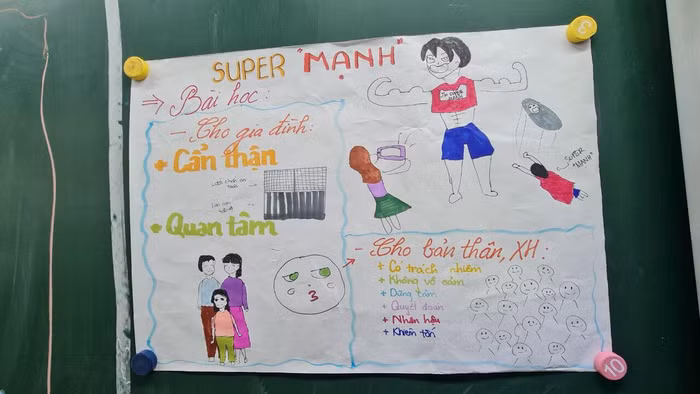 SUPER "MẠNH"
⇒ Bài học:
- Cho gia đình:
+ Cẩn thận
+ Quan tâm
SUPER "MẠNH"
- Cho bản thân, XH:
+ Có trách nhiệm
+ Không vô cảm
+ Dũng cảm
+ Quyết đoán
+ Nhân hậu
+ Khiêm tốn
10